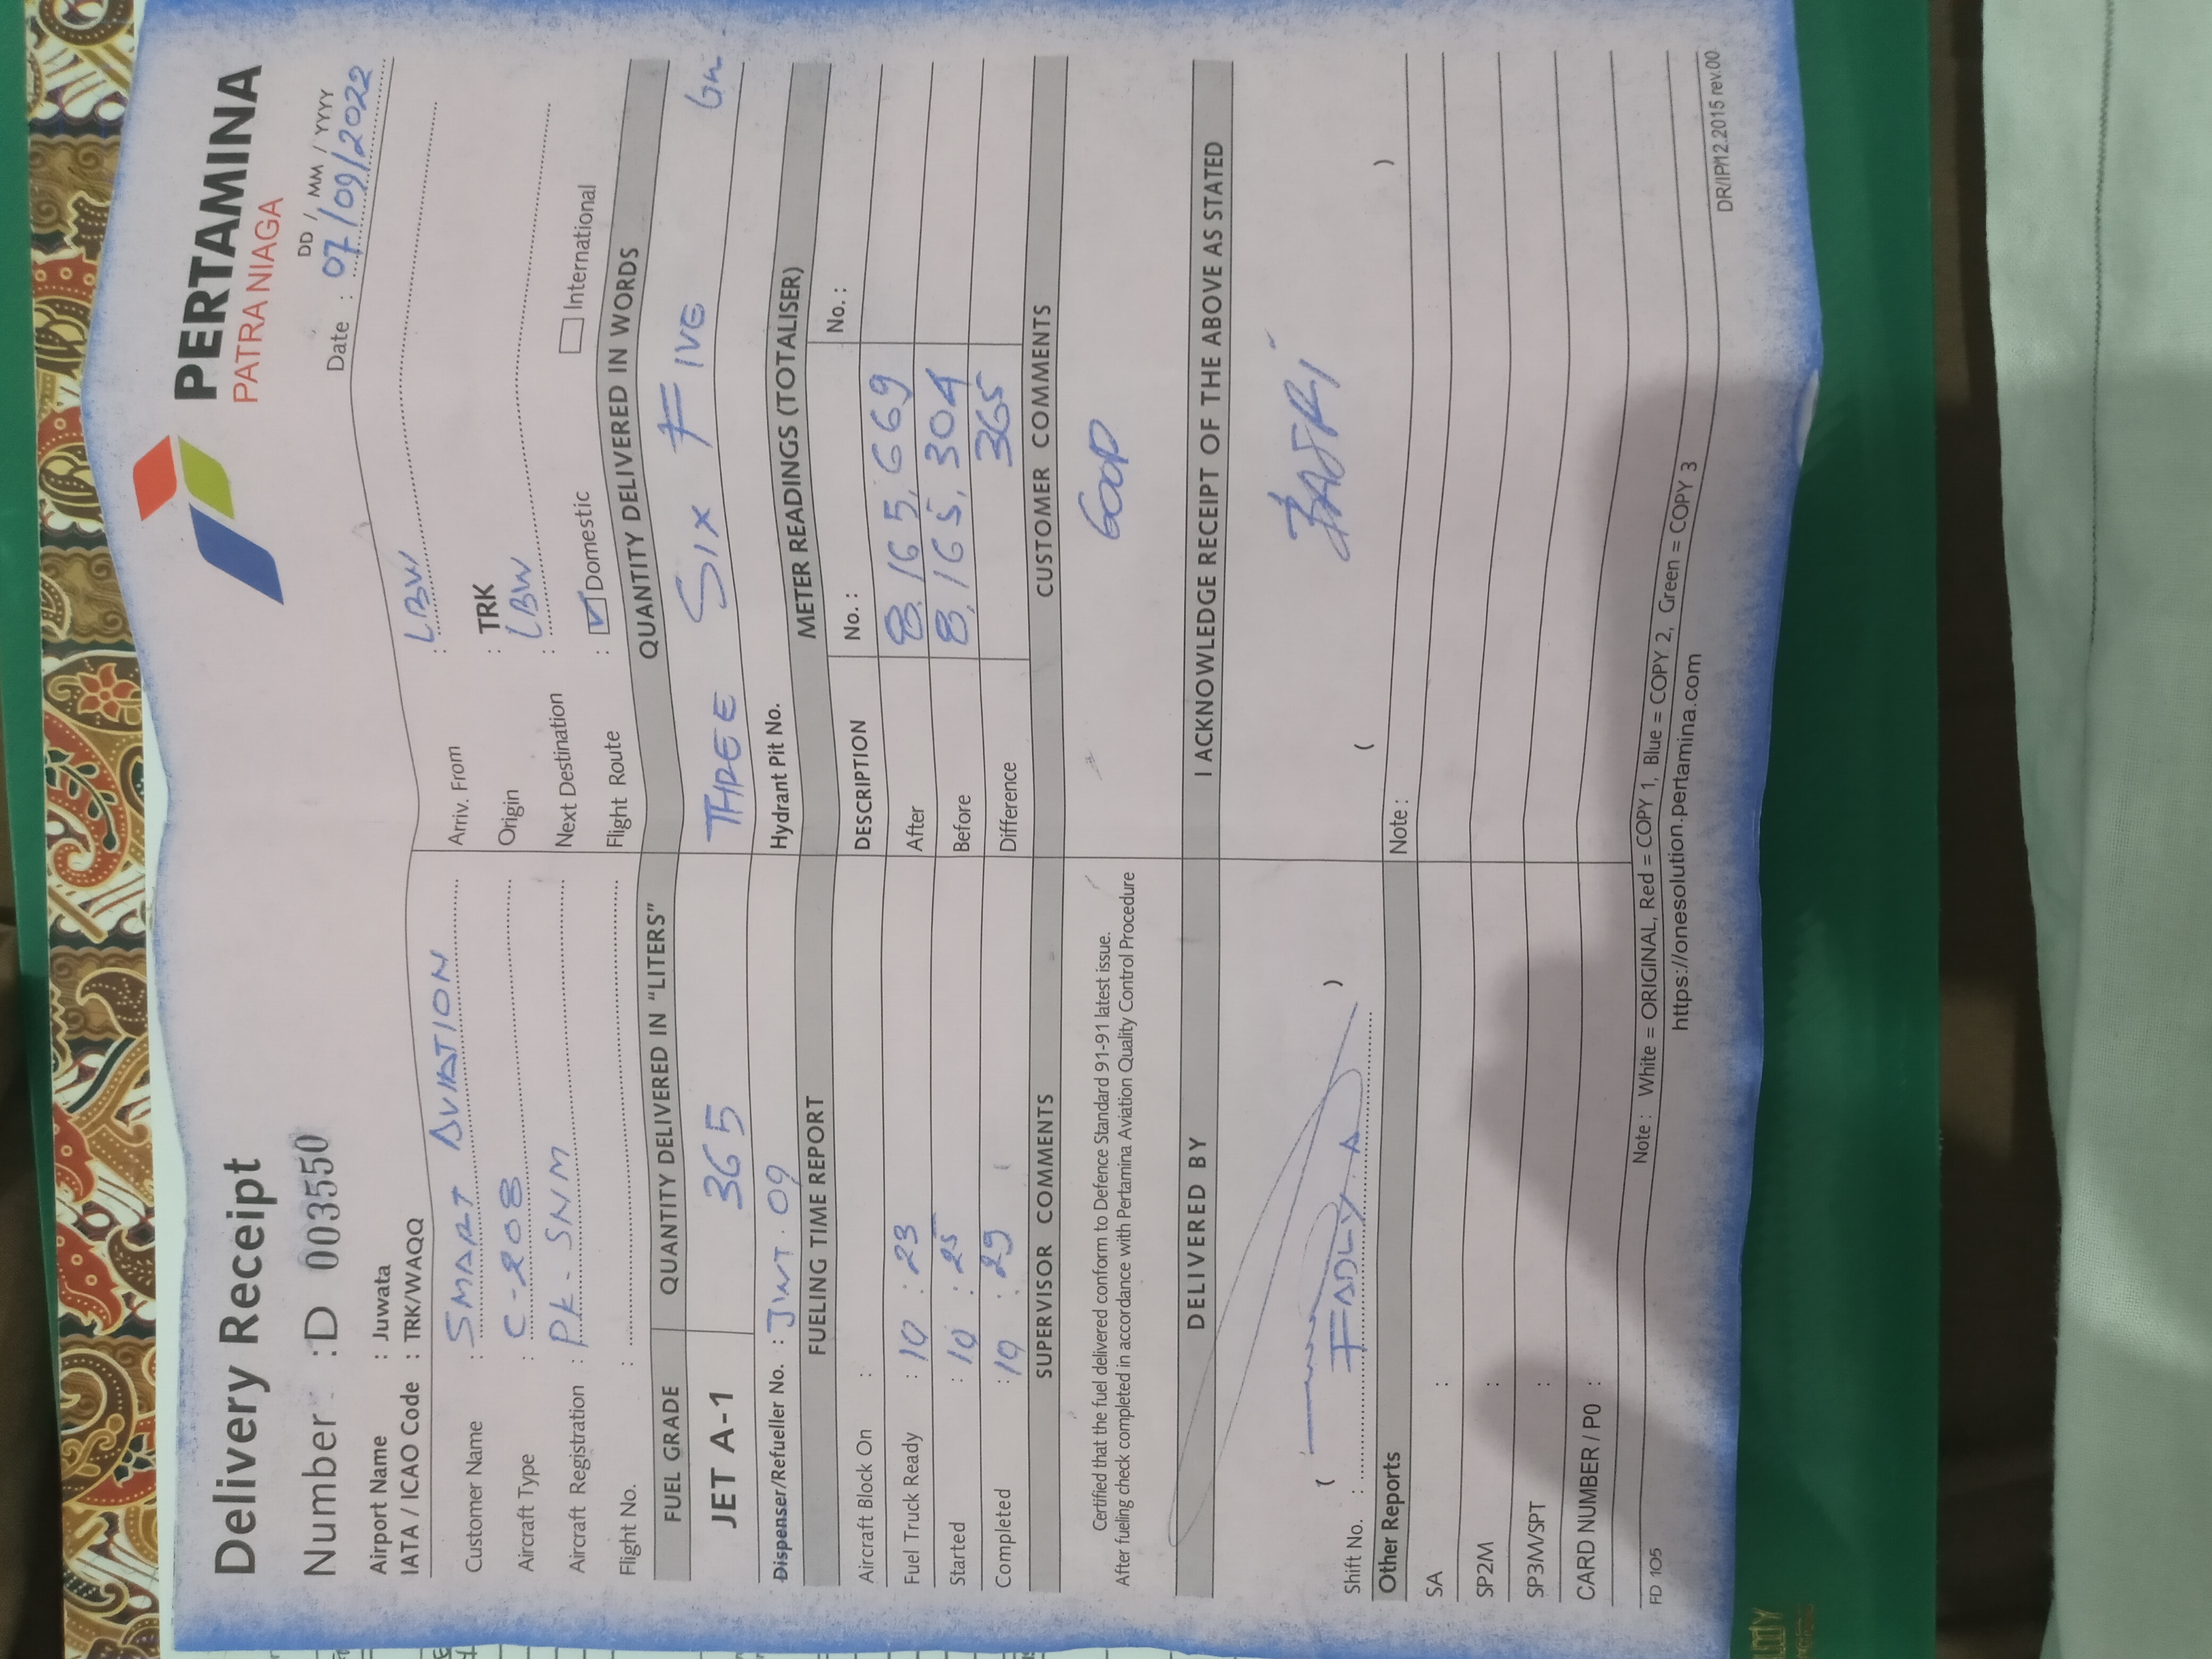 Delivery Receipt
PERTAMINA
PATRA NIAGA
Number : D 003550
DD / MM / YYYY
Date : 07/09/2022
Airport Name : Juwata
IATA / ICAO Code : TRK/WAQQ
Customer Name : SMART AVIATION
Arriv. From : LBW
Aircraft Type : C-208
Origin : TRK
Aircraft Registration : PK-SNM
Next Destination : LBW
Flight No. :
Flight Route : ☑ Domestic ☐ International
FUEL GRADE QUANTITY DELIVERED IN "LITERS" QUANTITY DELIVERED IN WORDS
JET A-1 365 THREE SIX FIVE
Dispenser/Refueller No. : JWT.09 Hydrant Pit No.
FUELING TIME REPORT METER READINGS (TOTALISER)
Aircraft Block On : DESCRIPTION No. : No. :
Fuel Truck Ready : 10 : 23 After 8,165,669
Started : 10 : 25 Before 8,165,304
Completed : 10 : 29 Difference 365
SUPERVISOR COMMENTS CUSTOMER COMMENTS
Certified that the fuel delivered conform to Defence Standard 91-91 latest issue.
After fueling check completed in accordance with Pertamina Aviation Quality Control Procedure
GOOD
DELIVERED BY I ACKNOWLEDGE RECEIPT OF THE ABOVE AS STATED
( FADLY A ) ( )
Shift No. :
Other Reports Note :
SA :
SP2M :
SP3M/SPT :
CARD NUMBER / PO :
Note : White = ORIGINAL, Red = COPY 1, Blue = COPY 2, Green = COPY 3
FD 105 https://onesolution.pertamina.com DR/IP/12.2015 rev.00